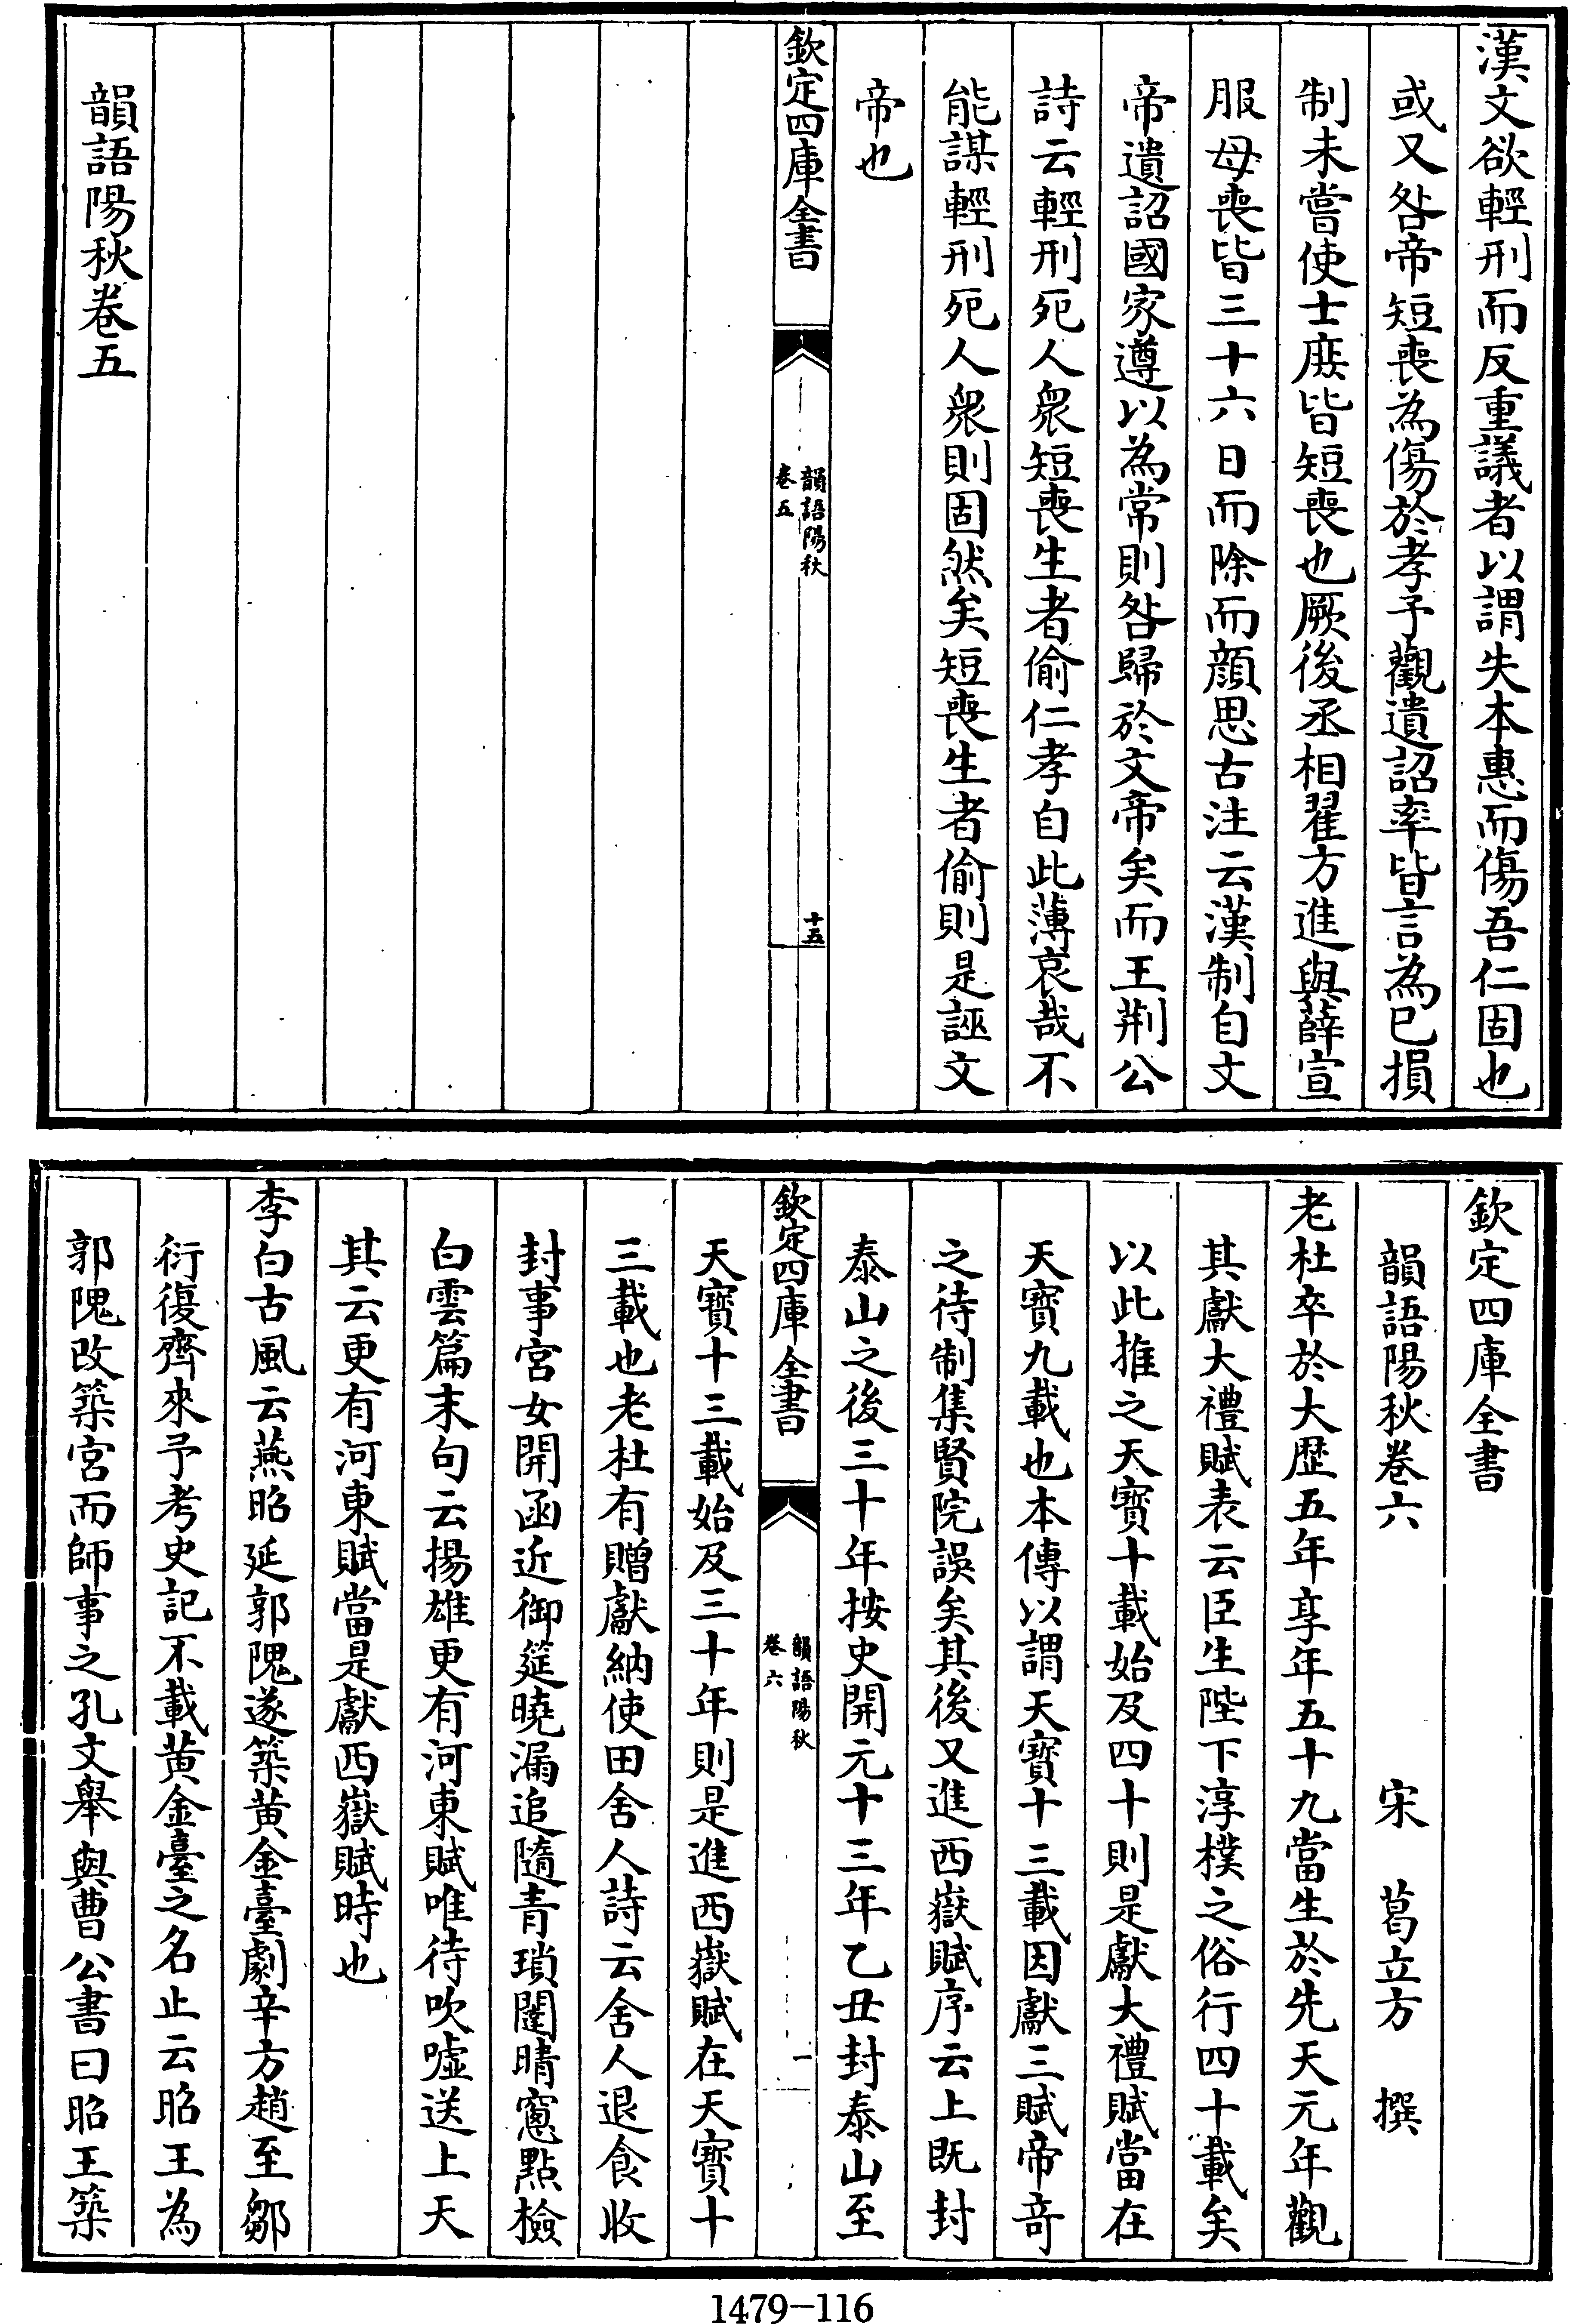 漢文欲輕刑而反重議者以謂失本惠而傷吾仁固也
或又咎帝短喪為傷於孝予觀遺詔率皆言為已損
制未嘗使士庶皆短喪也厥後丞相翟方進與薛宣
服母喪皆三十六日而除而顔思古注云漢制自文
帝遺詔國家遵以為常則咎歸於文帝矣而王荆公
詩云輕刑死人衆短喪生者偷仁孝自此薄哀哉不
能謀輕刑死人衆則固然矣短喪生者偷則是誣文
帝也
欽定四庫全書
韻語陽秋
卷五
十五
韻語陽秋卷五
欽定四庫全書
韻語陽秋卷六
宋 葛立方 撰
老杜卒於大歷五年享年五十九當生於先天元年觀
其獻大禮賦表云臣生陛下淳樸之俗行四十載矣
以此推之天寳十載始及四十則是獻大禮賦當在
天寳九載也本傳以謂天寳十三載因獻三賦帝竒
之待制集賢院誤矣其後又進西嶽賦序云上既封
泰山之後三十年按史開元十三年乙丑封泰山至
欽定四庫全書
韻語陽秋
卷六
一
天寳十三載始及三十年則是進西嶽賦在天寳十
三載也老杜有贈獻納使田舍人詩云舍人退食收
封事宮女開函近御筵曉漏追隨青瑣闥晴窻點檢
白雲篇末句云揚雄更有河東賦唯待吹嘘送上天
其云更有河東賦當是獻西嶽賦時也
李白古風云燕昭延郭隗遂築黄金臺劇辛方趙至鄒
衍復齊來予考史記不載黄金臺之名止云昭王為
郭隗改築宮而師事之孔文舉與曹公書曰昭王築
1479-116